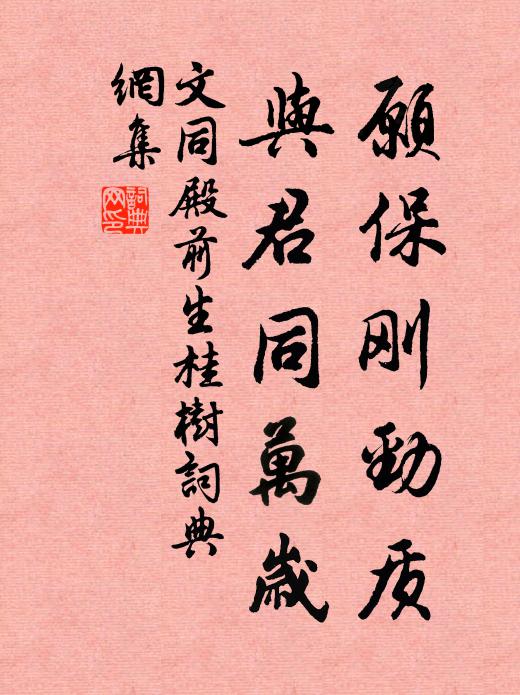 願保刚勁质
與君同萬歲
文同殿前生桂樹詞典
網集
詞典网印